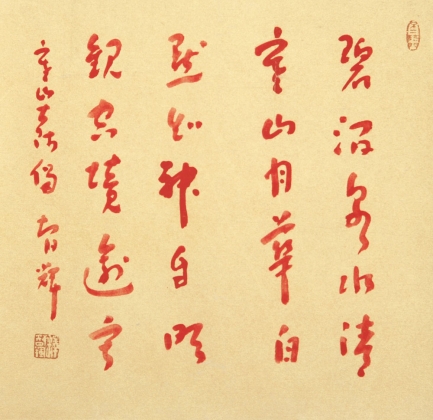 碧澗泉水清
寒山月華白
默知神自明
觀空境逾寂
寒山大師偈 智輝